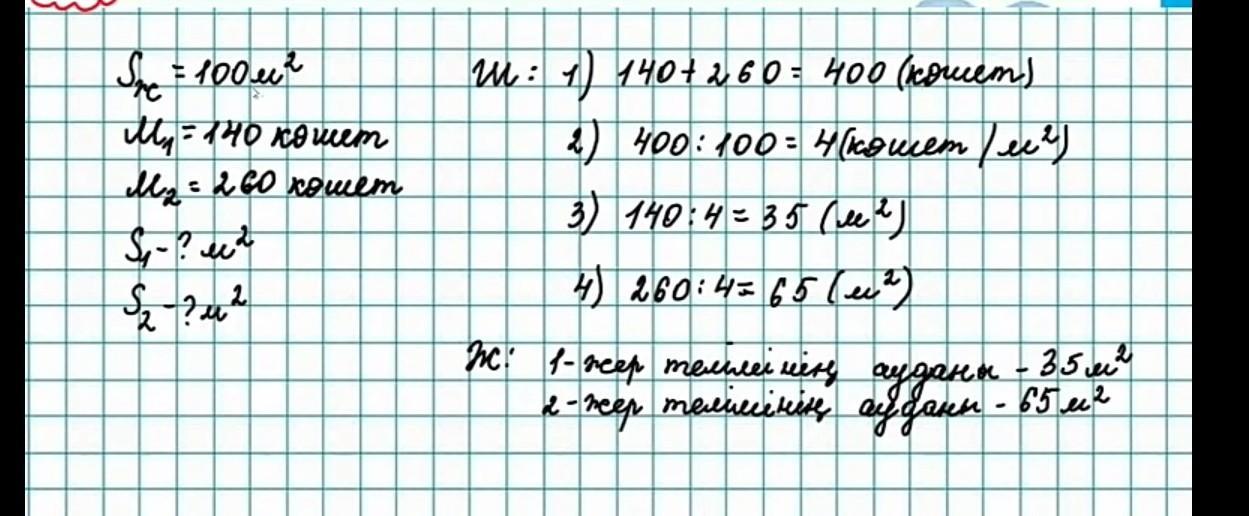 Sжс = 100 м²
M₁ = 140 көшет
M₂ = 260 көшет
S₁ - ? м²
S₂ - ? м²
Ш: 1) 140 + 260 = 400 (көшет)
2) 400 : 100 = 4 (көшет / м²)
3) 140 : 4 = 35 (м²)
4) 260 : 4 = 65 (м²)
Ж: 1-жер телімінің ауданы - 35 м²
2-жер телімінің ауданы - 65 м²